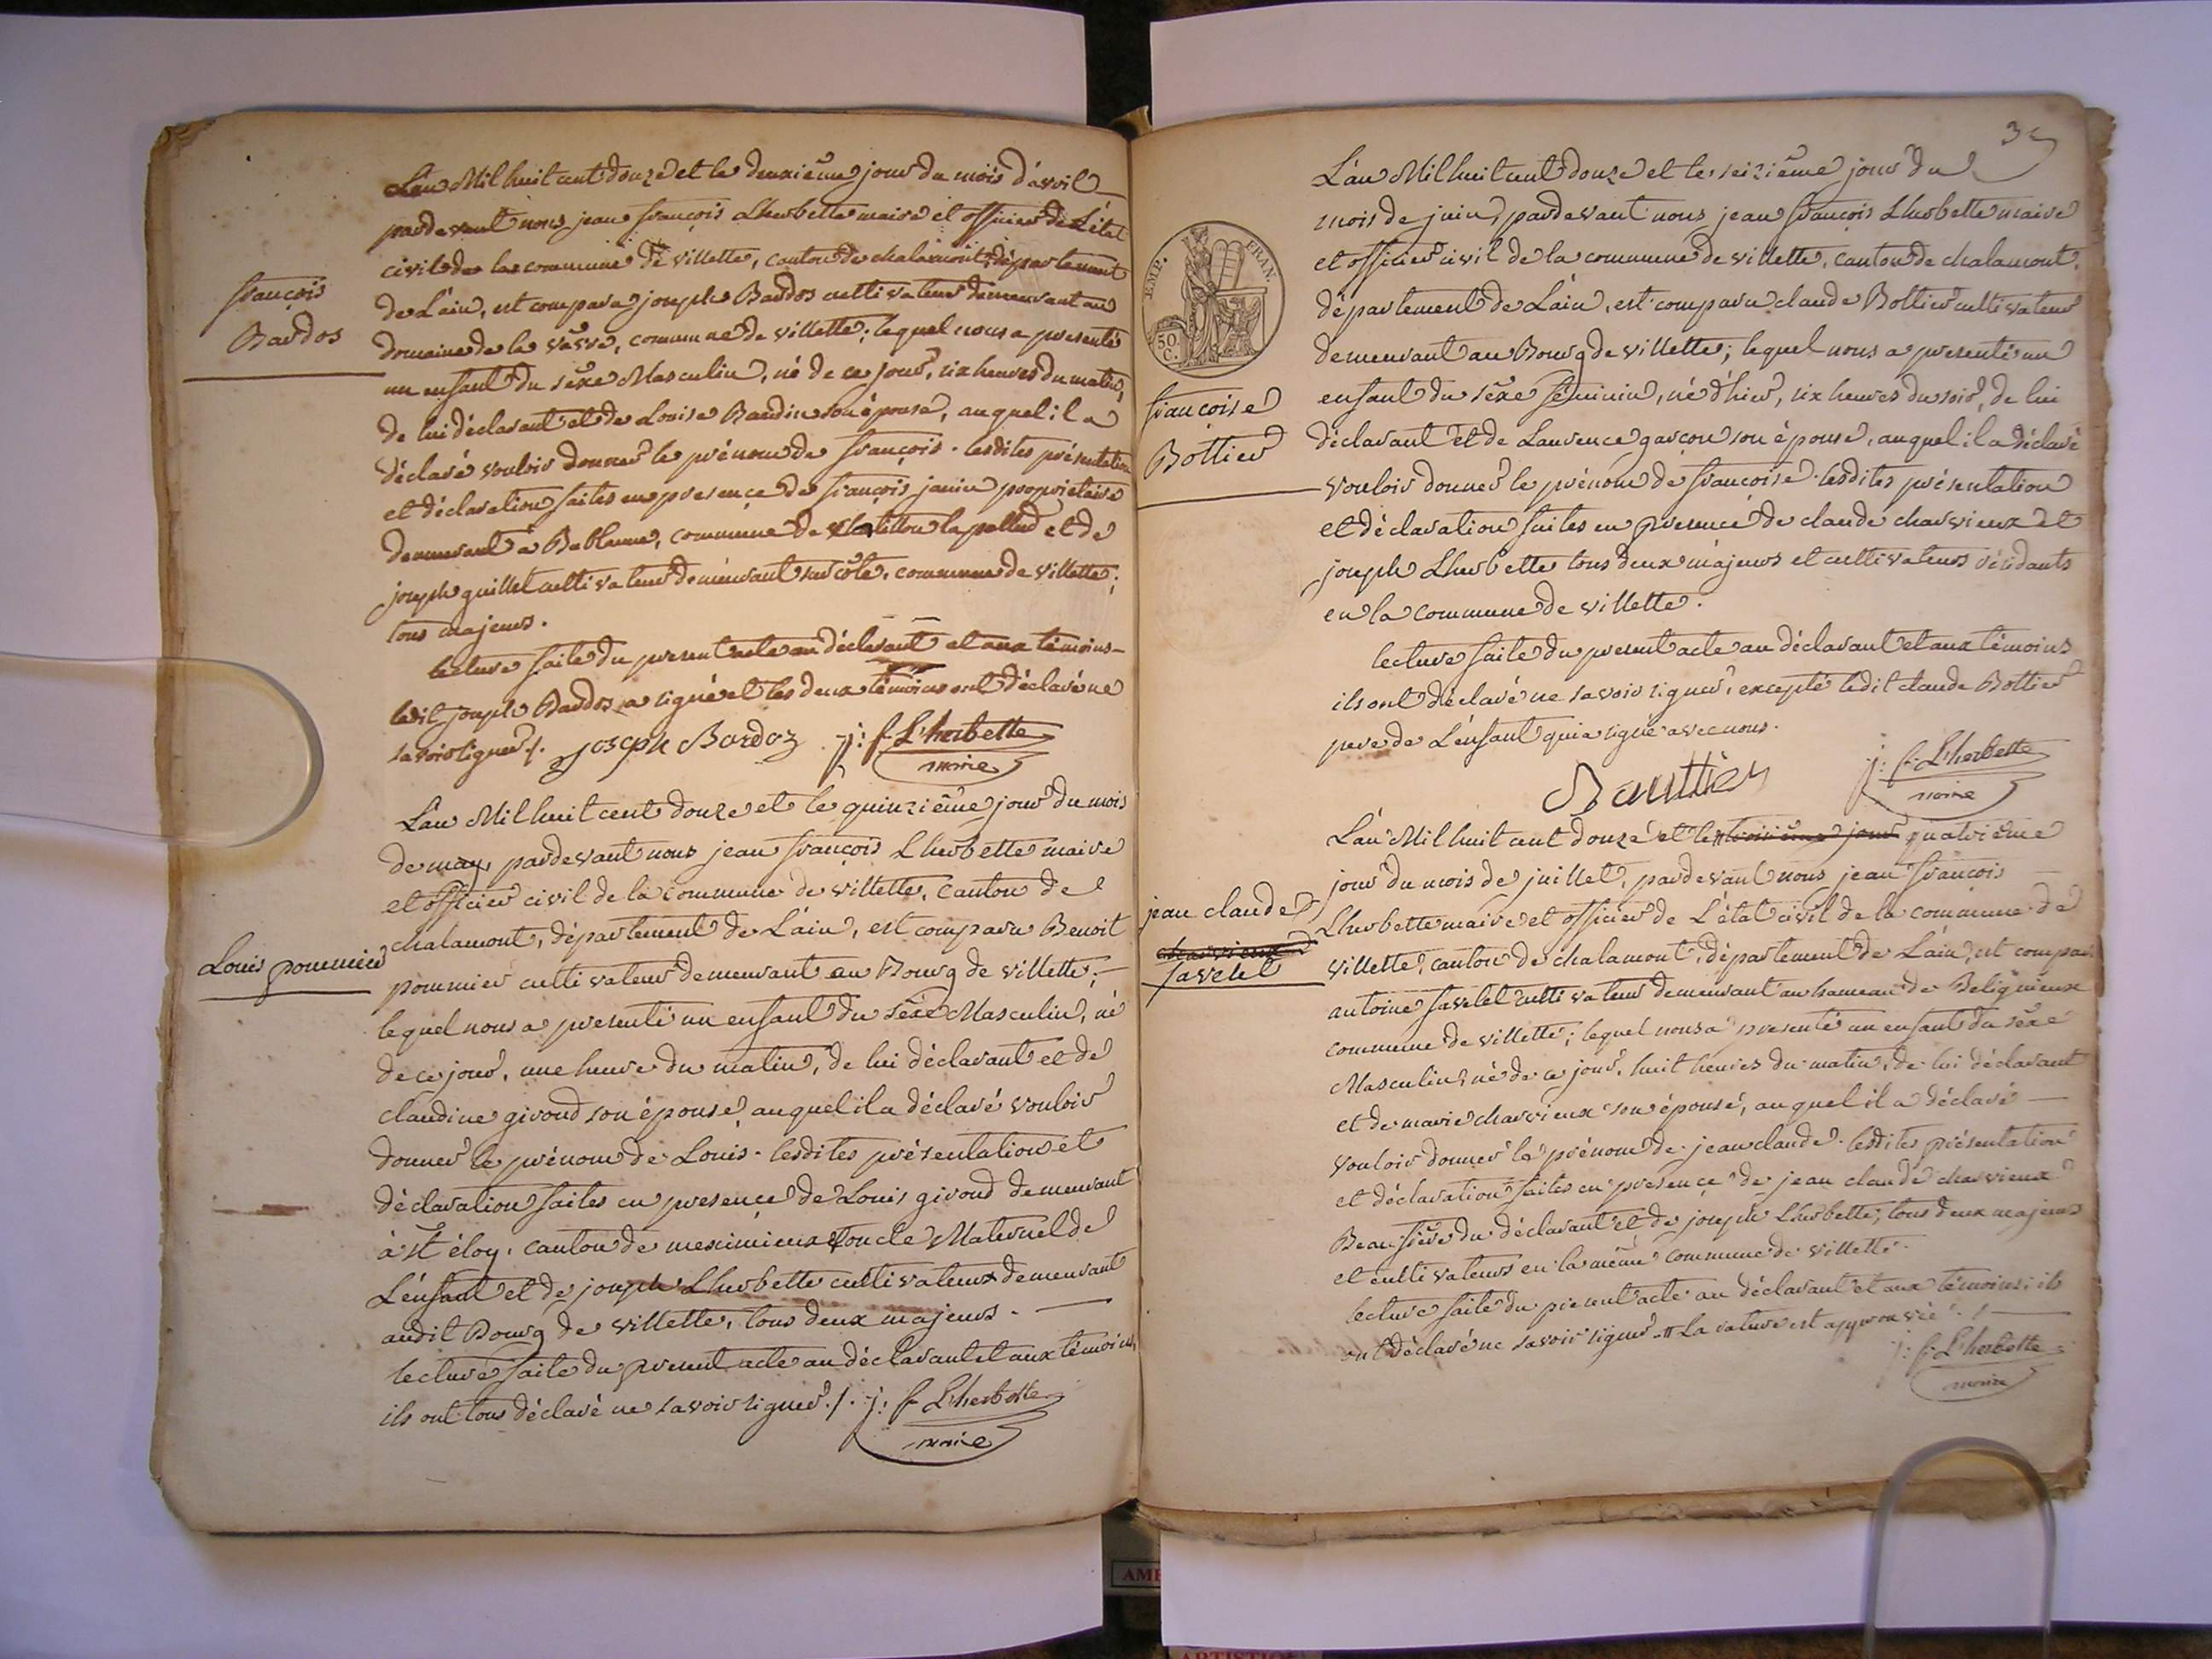 françois
Bardos
L'an Mil huit cent douze et le deuxième jour du mois d'avril
pardevant nous jean françois Lherbette maire et officier de L'état
civil de la commune de villette, canton de chalamont, département
de L'ain, est comparu joseph Bardos cultivateur demeurant au
domaine de la vavre, commune de villette; lequel nous a presenté
un enfant du sèxe Masculin, né de ce jour, six heures du matin,
de lui déclarant et de Louise Baudin son épouse, auquel il a
déclaré vouloir donner le prénom de françois. lesdites présentation
et déclaration faites en presence de françois janin propriétaire
demeurant à Bublanne, commune de chatillon lapallud et de
joseph guillet cultivateur demeurant sur côte, commune de villette;
tous majeurs.
lecture faite du present acte au déclarant et aux témoins
ledit joseph Bardos a signé et les deux témoins ont déclaré ne
savoir signer ./. joseph Bardoz j: f. L'herbette
maire
Louis pommier
L'an Mil huit cent douze et le quinzième jour du mois
de may, pardevant nous jean françois Lherbette maire
et officier civil de la commune de villette, canton de
chalamont, département de L'ain, est comparu Benoit
pommier cultivateur demeurant au Bourg de villette;
lequel nous a presenté un enfant du sèxe Masculin, né
de ce jour, une heure du matin, de lui déclarant et de
claudine givord son épouse, auquel il a déclaré vouloir
donner le prénom de Louis. lesdites présentation et
déclaration faites en presence de Louis givord demeurant
à st éloy, canton de meximieux oncle Maternel de
L'enfant et de joseph Lherbette cultivateur demeurant
audit Bourg de villette, tous deux majeurs.
lecture faite du present acte au déclarant et aux témoins,
ils ont tous déclaré ne savoir signer ./. j: f. L'herbette
maire
3
EMP. FRAN.
50.
C.
françoise
Bottier
L'an Mil huit cent douze et le seizième jour du
mois de juin, pardevant nous jean françois Lherbette maire
et officier civil de la commune de villette, canton de chalamont,
département de L'ain, est comparu claude Bottier cultivateur
demeurant au Bourg de villette; lequel nous a presenté un
enfant du sèxe féminin, né d'hier, six heures du soir, de lui
déclarant et de Laurence garçon son épouse, auquel il a déclaré
vouloir donner le prénom de françoise. lesdites présentation
et déclaration faites en presence de claude charvieux et
joseph Lherbette tous deux majeurs et cultivateurs résidants
en la commune de villette.
lecture faite du present acte au déclarant et aux témoins
ils ont déclaré ne savoir signer, excepté ledit claude Bottier
pere de L'enfant qui a signé avec nous.
Bauttier j: f. L'herbette
maire
jean claude
charvieux
favelet
L'an Mil huit cent douze et le troisième jour quatrième
jour du mois de juillet, pardevant nous jean françois
Lherbette maire et officier de L'état civil de la commune de
villette, canton de chalamont, département de L'ain, est comparu
antoine favelet cultivateur demeurant au hameau de Beligneux
commune de villette; lequel nous a presenté un enfant du sèxe
Masculin, né de ce jour, huit heures du matin, de lui déclarant
et de marie charvieux son épouse, auquel il a déclaré
vouloir donner le prénom de jean claude. lesdites présentation
et déclaration faites en presence de jean claude charvieux
Beaufrère du déclarant et de joseph Lherbette, tous deux majeurs
et cultivateurs en la même commune de villette.
lecture faite du present acte au déclarant et aux témoins, ils
ont déclaré ne savoir signer. # La rature est approuvée ./.
j: f. L'herbette
maire